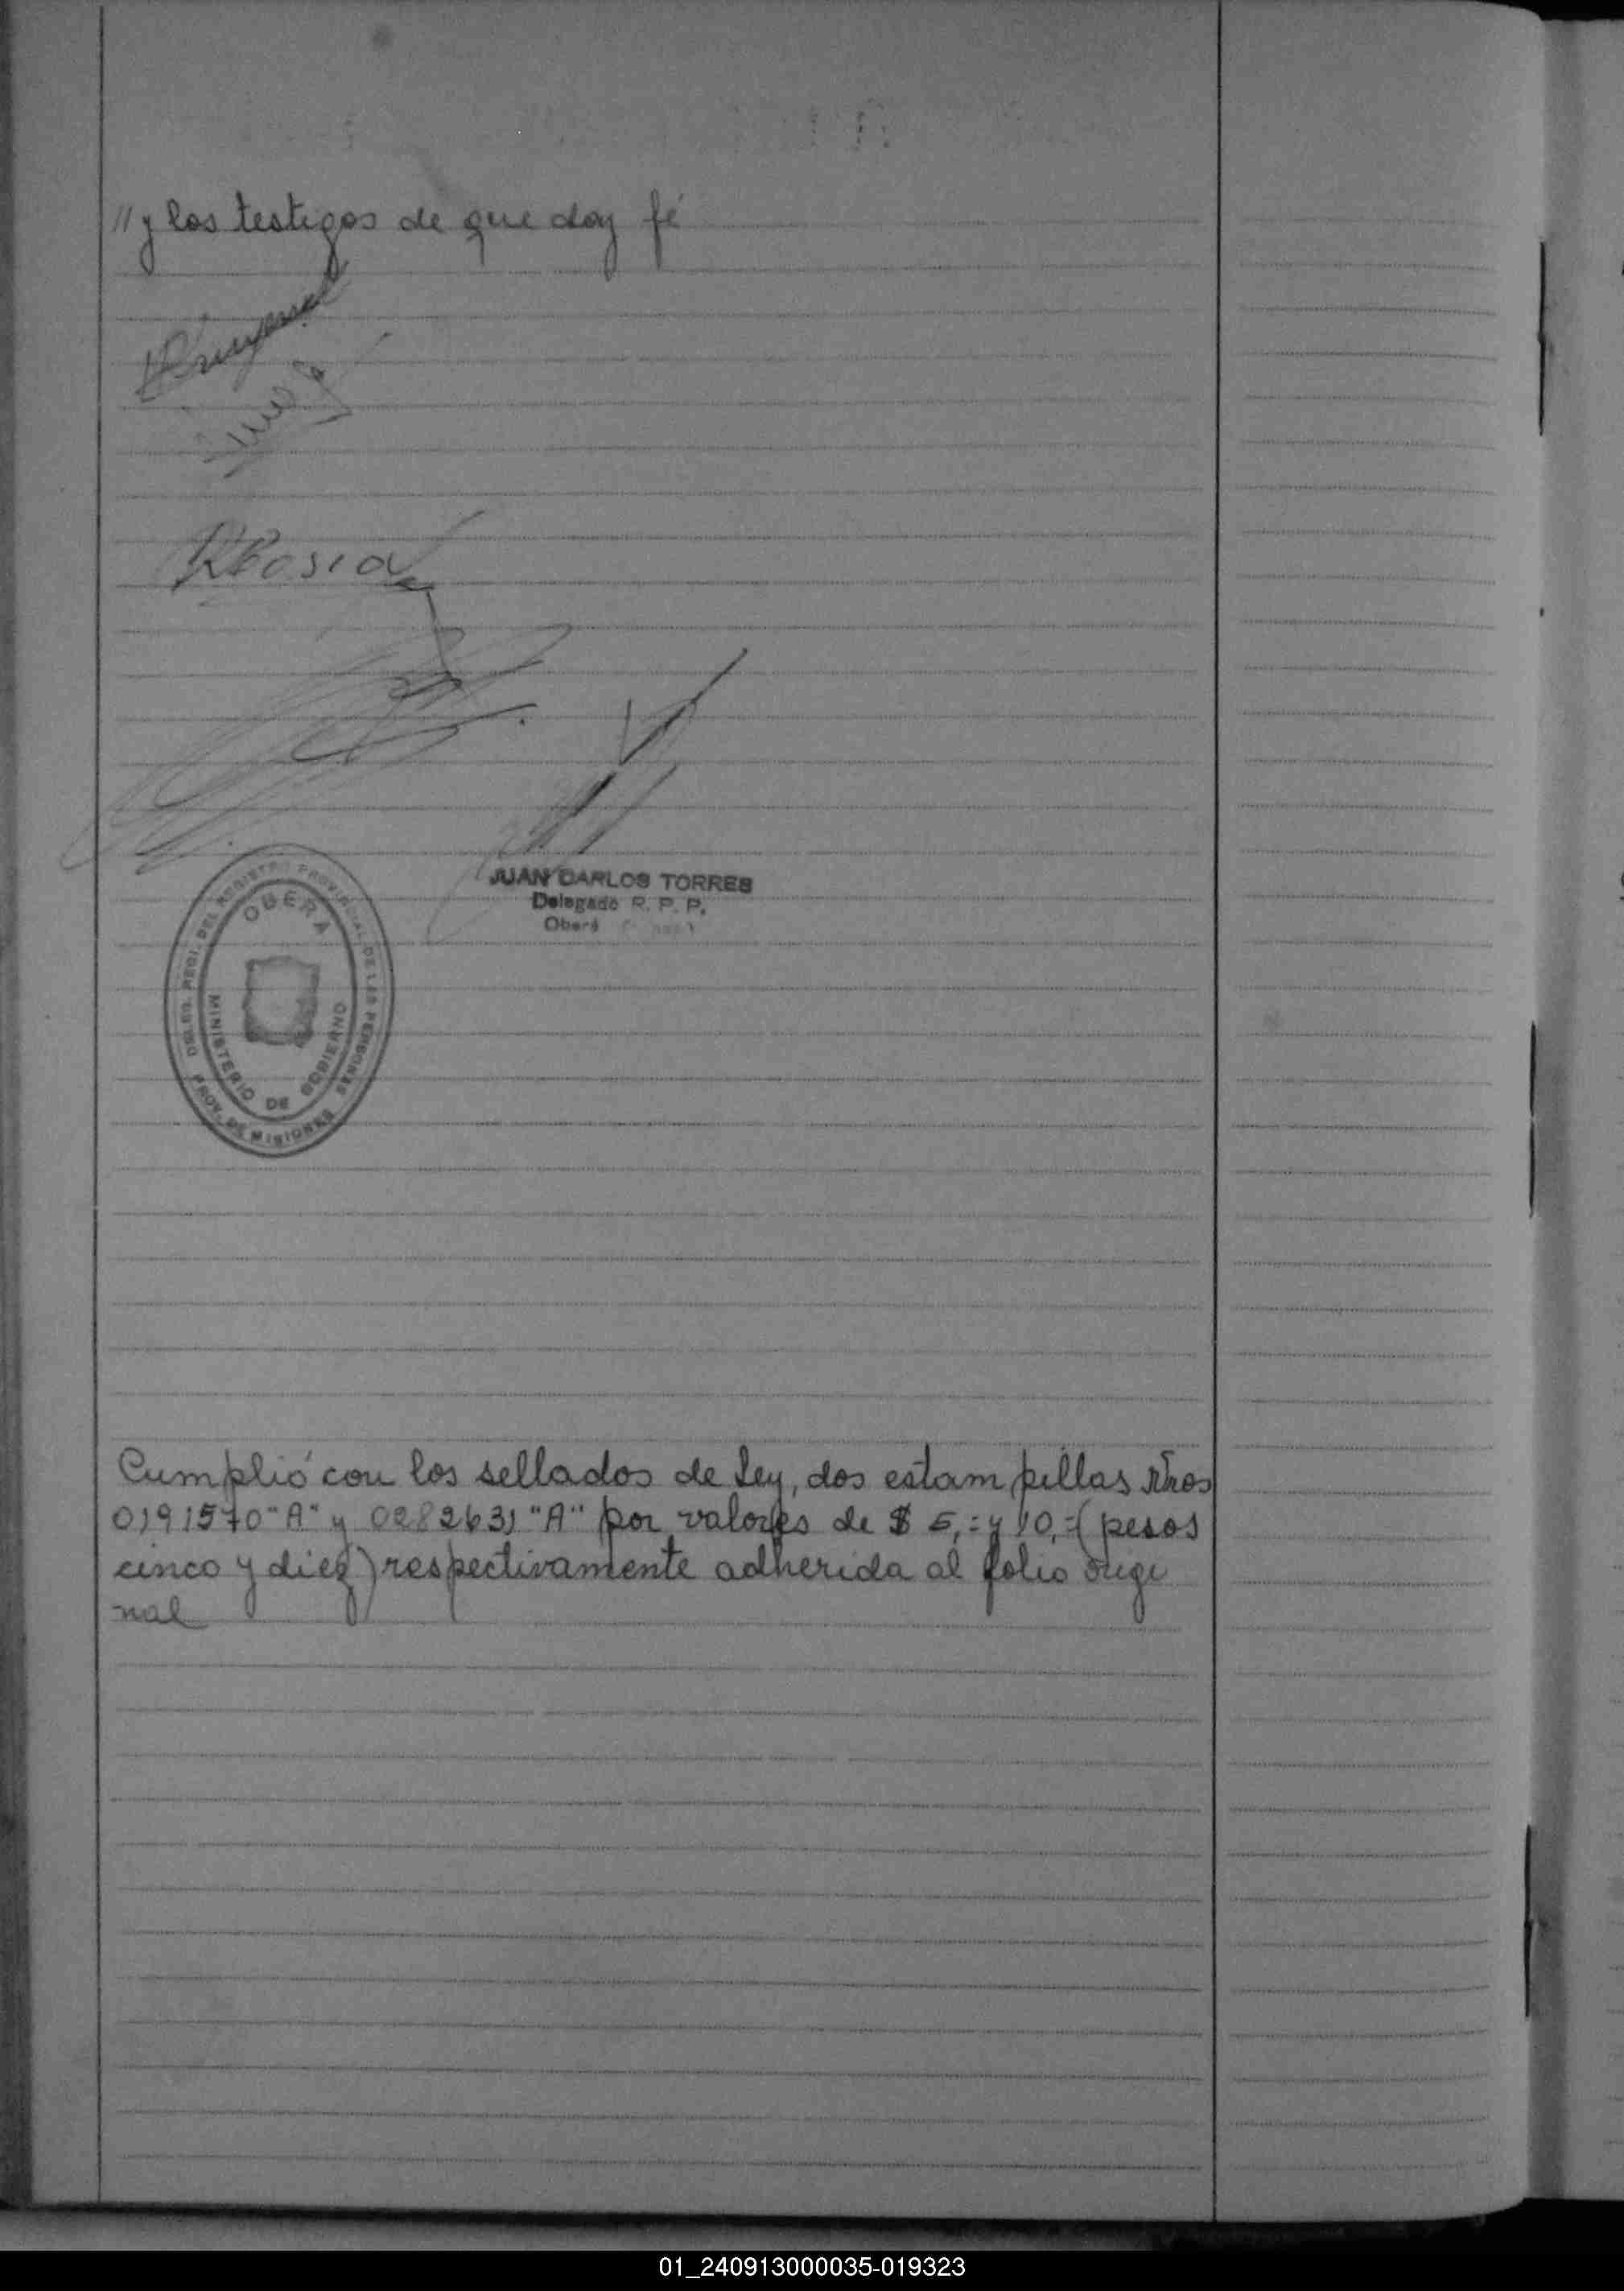 // y los testigos de que doy fé
JUAN CARLOS TORRES
Delegado R. P. P.
Oberá
DELEG. REGI. DEL REGISTRO PROVINCIAL DE LAS PERSONAS
OBERA
MINISTERIO DE GOBIERNO
PROV. DE MISIONES
Cumplió con los sellados de Ley, dos estampillas Nros
0191570 "A" y 0282631 "A" por valores de $ 5,= y 10,= (pesos
cinco y diez) respectivamente adherida al folio origi
nal
01_240913000035-019323